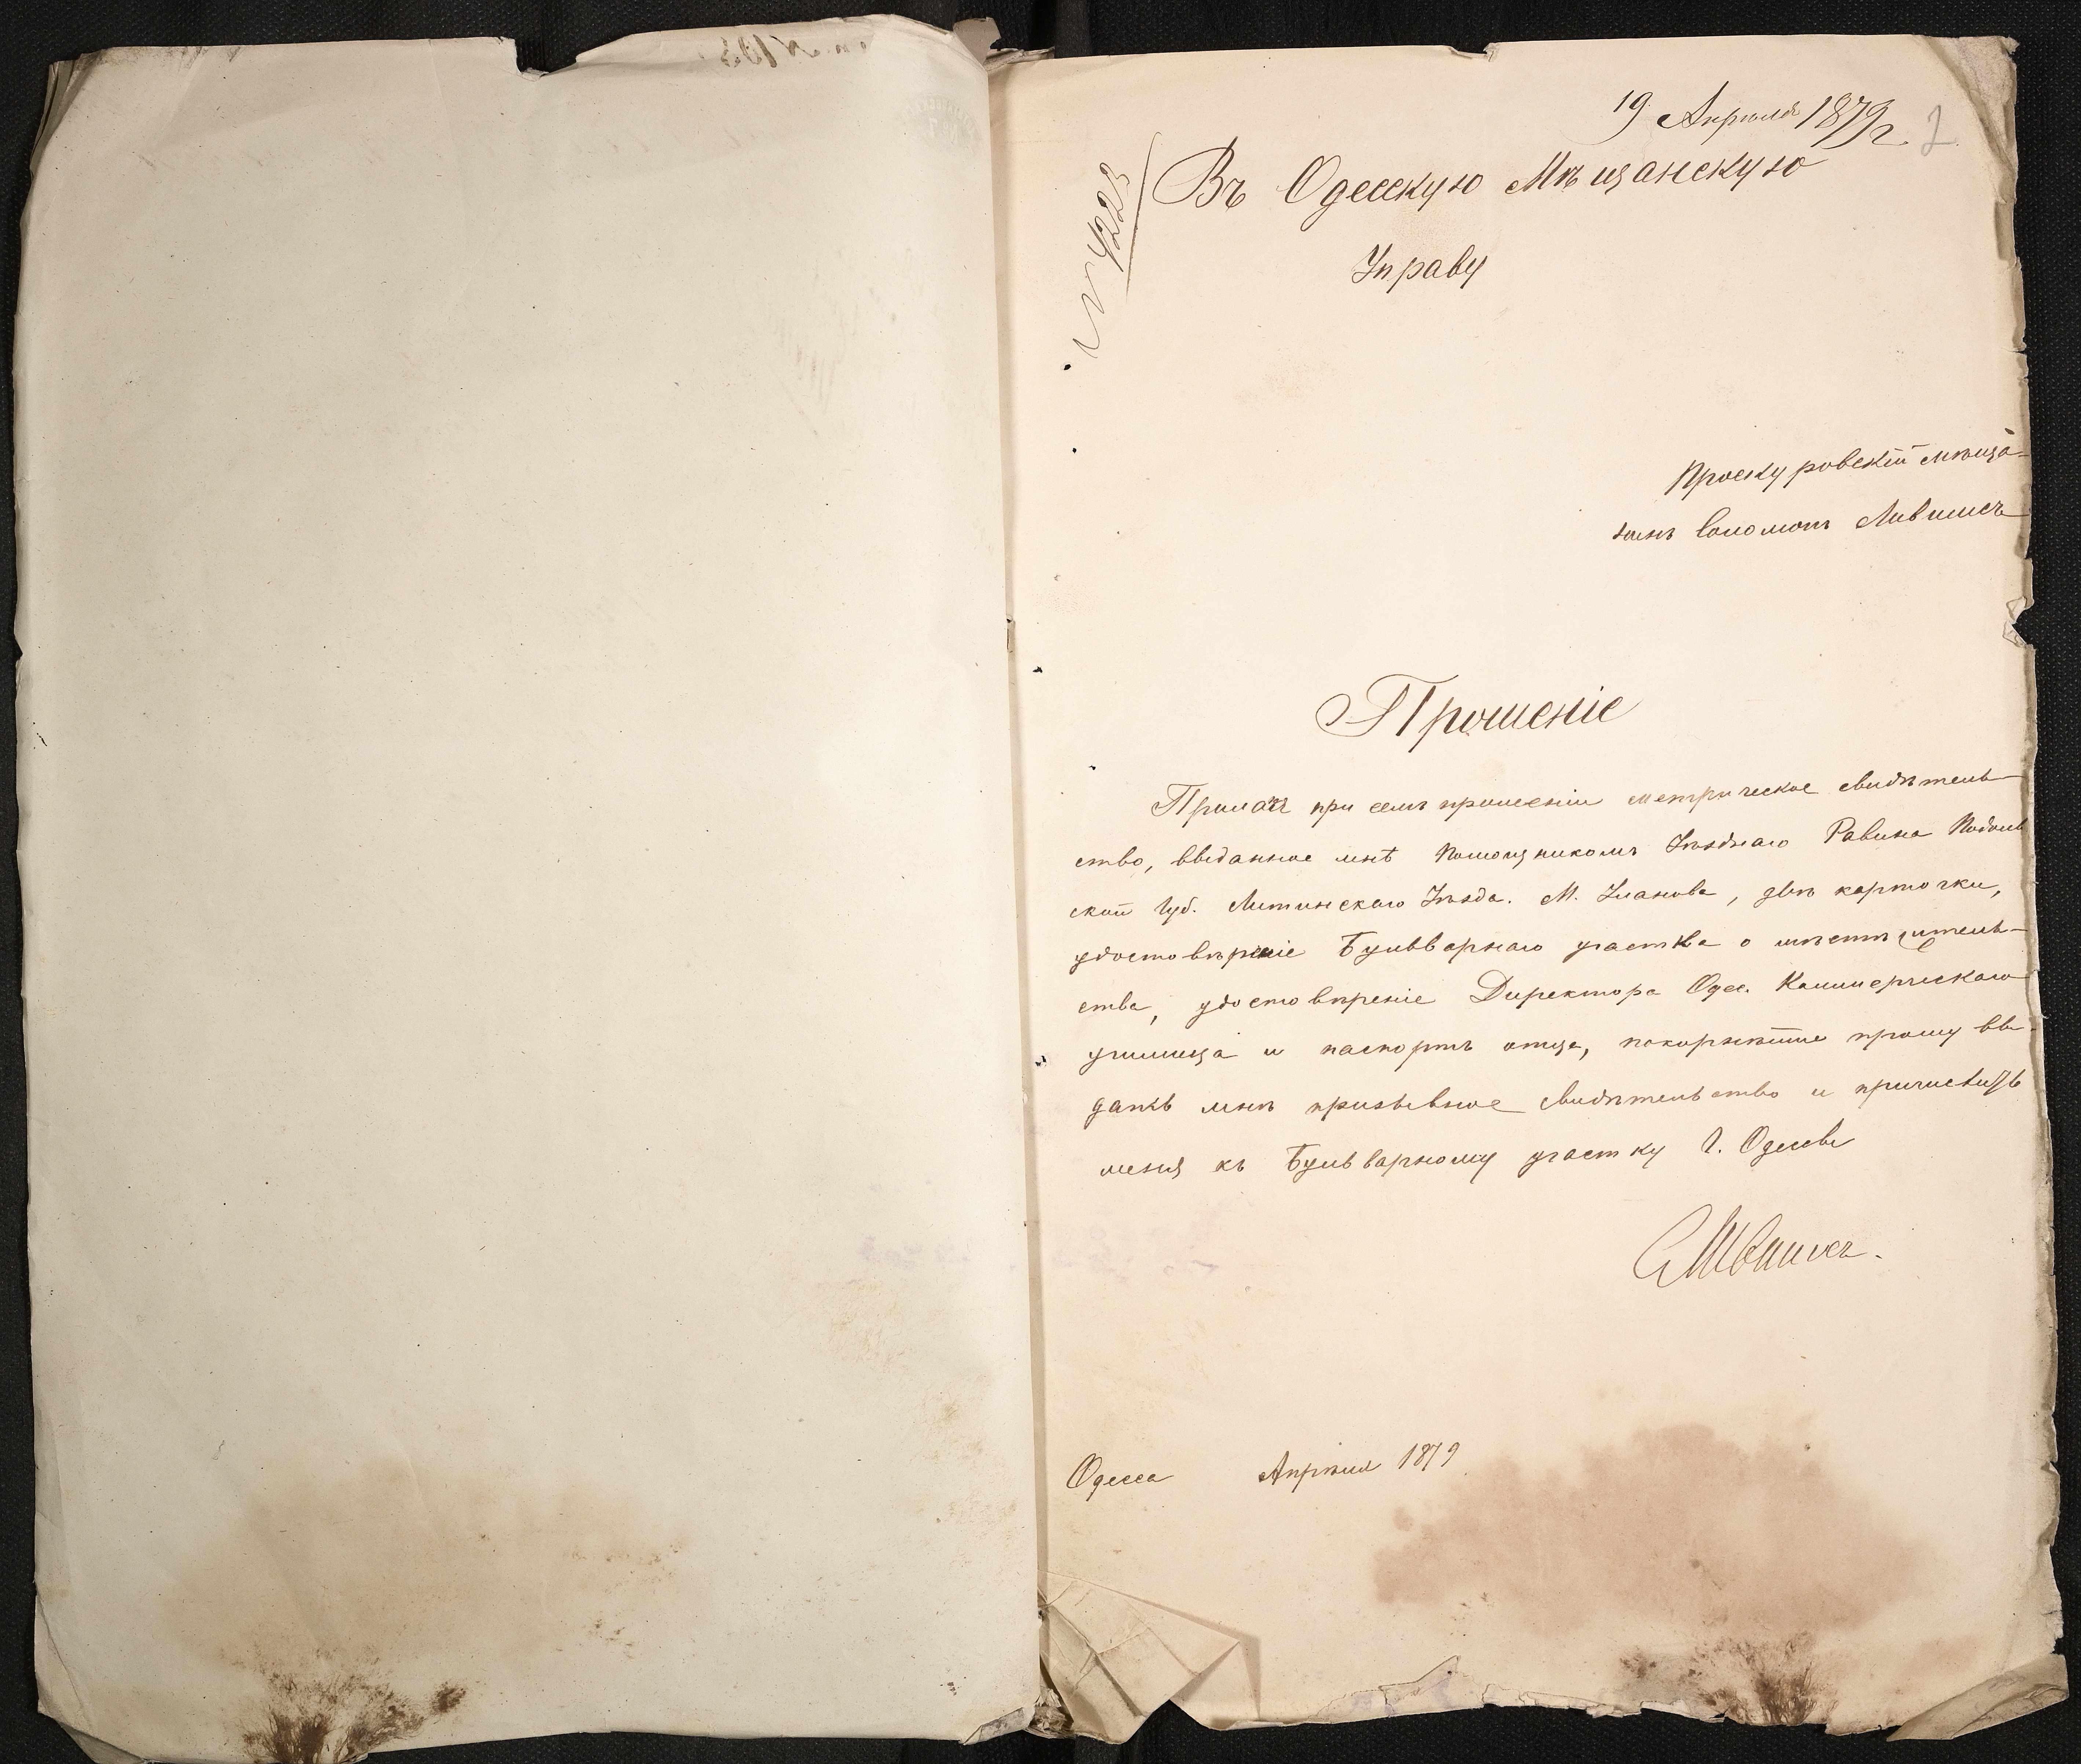 19 Апрѣля 1879 г.
№ 4223
Въ Одесскую Мѣщанскую
Управу
Проскуровскій мѣща-
нинъ Соломонъ Лившисъ
Прошеніе
Прилагая при семъ прошеніи метрическое свидѣтель-
ство, выданное мнѣ Помощникомъ Уѣзднаго Равина Подоль
ской Губ. Литинскаго Уѣзда. М. Уланова, двѣ карточки,
удостовѣреніе Бульварнаго участка о мѣстѣ жительъ-
ства, удостовѣреніе Директора Одес. Коммерческаго
училища и паспортъ отца, покорнѣйше прошу вы-
дать мнѣ призывное свидѣтельство и причислить
меня къ Бульварному участку г. Одессы
СЛившисъ.
Одесса Апрѣля 1879